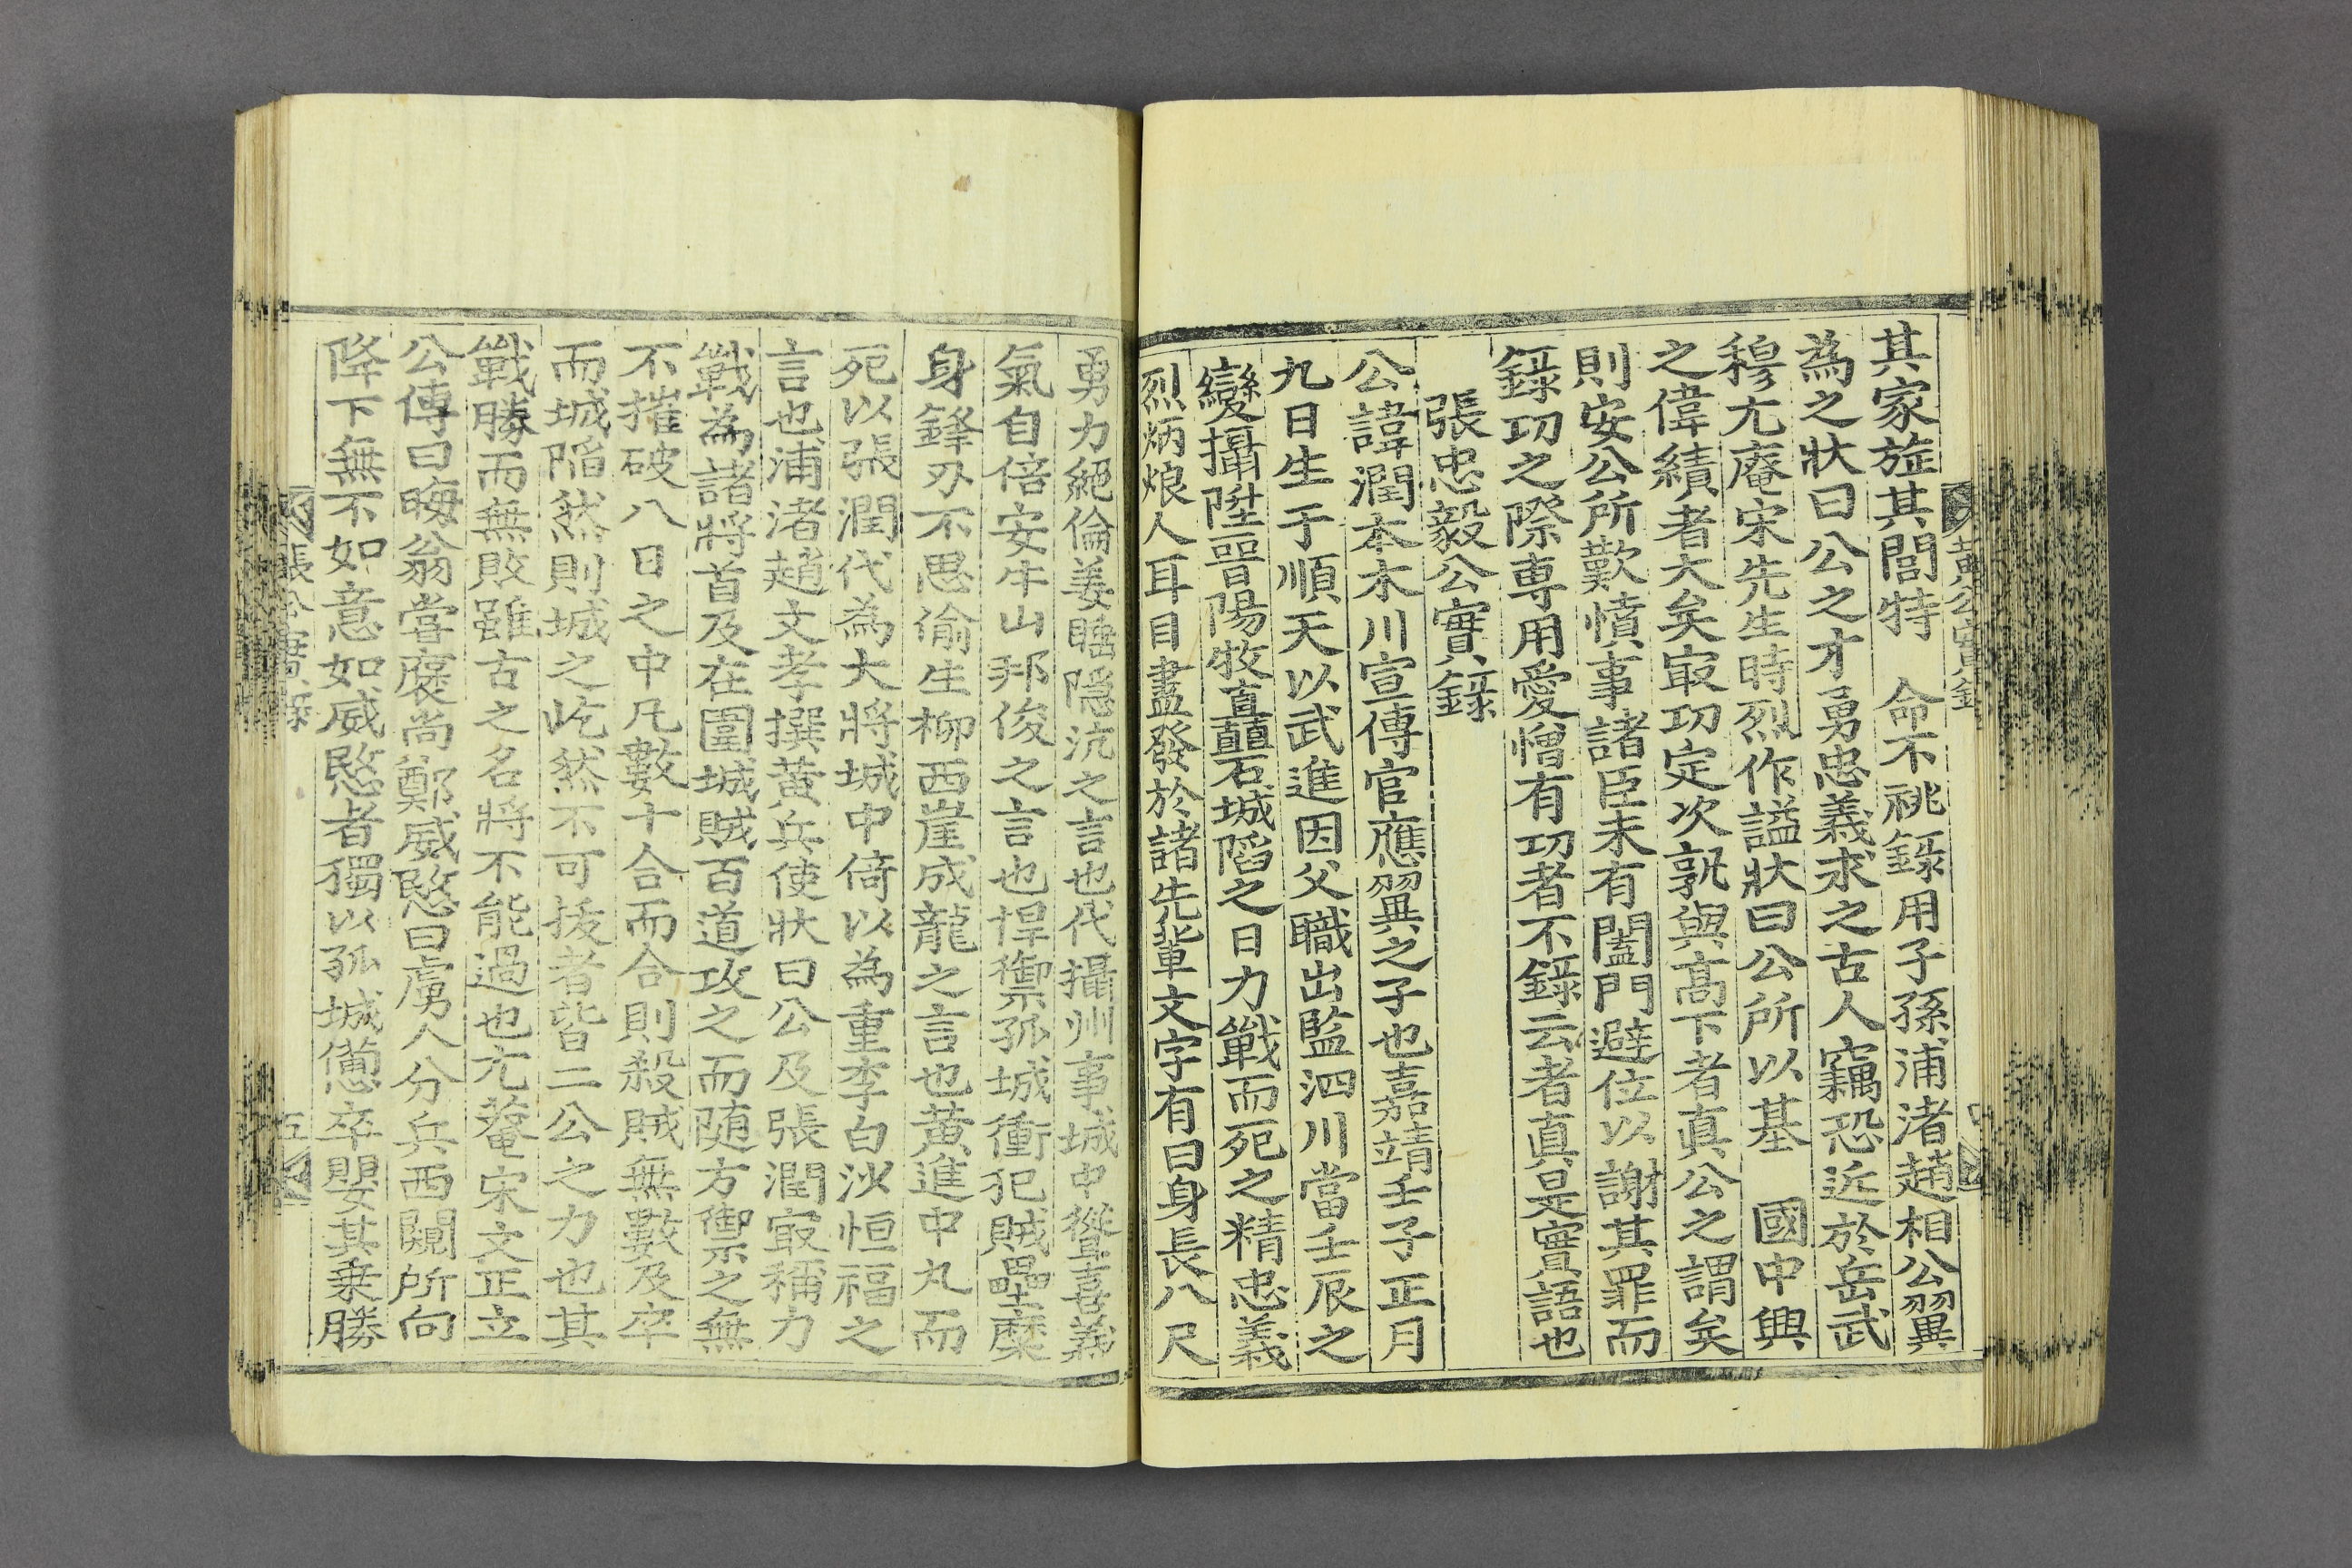 其家旌其閭特 命不祧錄用子孫浦渚趙相公翼
為之狀曰公之才勇忠義求之古人竊恐近於岳武
穆尤庵宋先生時烈作謚狀曰公所以基 國中興
之偉績者大矣㝡功定次孰與高下者真公之謂矣
則安公所歎憤事諸臣未有闔門避位以謝其罪而
錄功之際専用愛憎有功者不錄云者真是實語也
張忠毅公實錄
公諱潤本木川宣傳官應翼之子也嘉靖壬子正月
九日生于順天以武進因父職出監泗川當壬辰之
變攝陞晉陽牧直矗石城陷之日力戰而死之精忠義
烈炳烺人耳目盡發於諸先輩文字有曰身長八尺
勇力絕倫姜睡隱沆之言也代攝州事城中聳喜義
氣自倍安牛山邦俊之言也捍禦孤城衝犯賊壘糜
身鋒刃不思偷生柳西崖成龍之言也黃進中丸而
死以張潤代為大將城中倚以為重李白沙恒福之
言也浦渚趙文孝撰黃兵使狀曰公及張潤㝡稱力
戰為諸將首及在圍城賊百道攻之而随方禦之無
不摧破八日之中凡數十合而合則殺賊無數及卒
而城陷然則城之屹然不可拔者皆二公之力也其
戰勝而無敗雖古之名將不能過也尤菴宋文正立
公傳曰晦翁嘗褒尚鄭威愍曰虜人分兵西闚所向
降下無不如意如威愍者獨以孤城憊卒嬰其乗勝
張公實錄 五